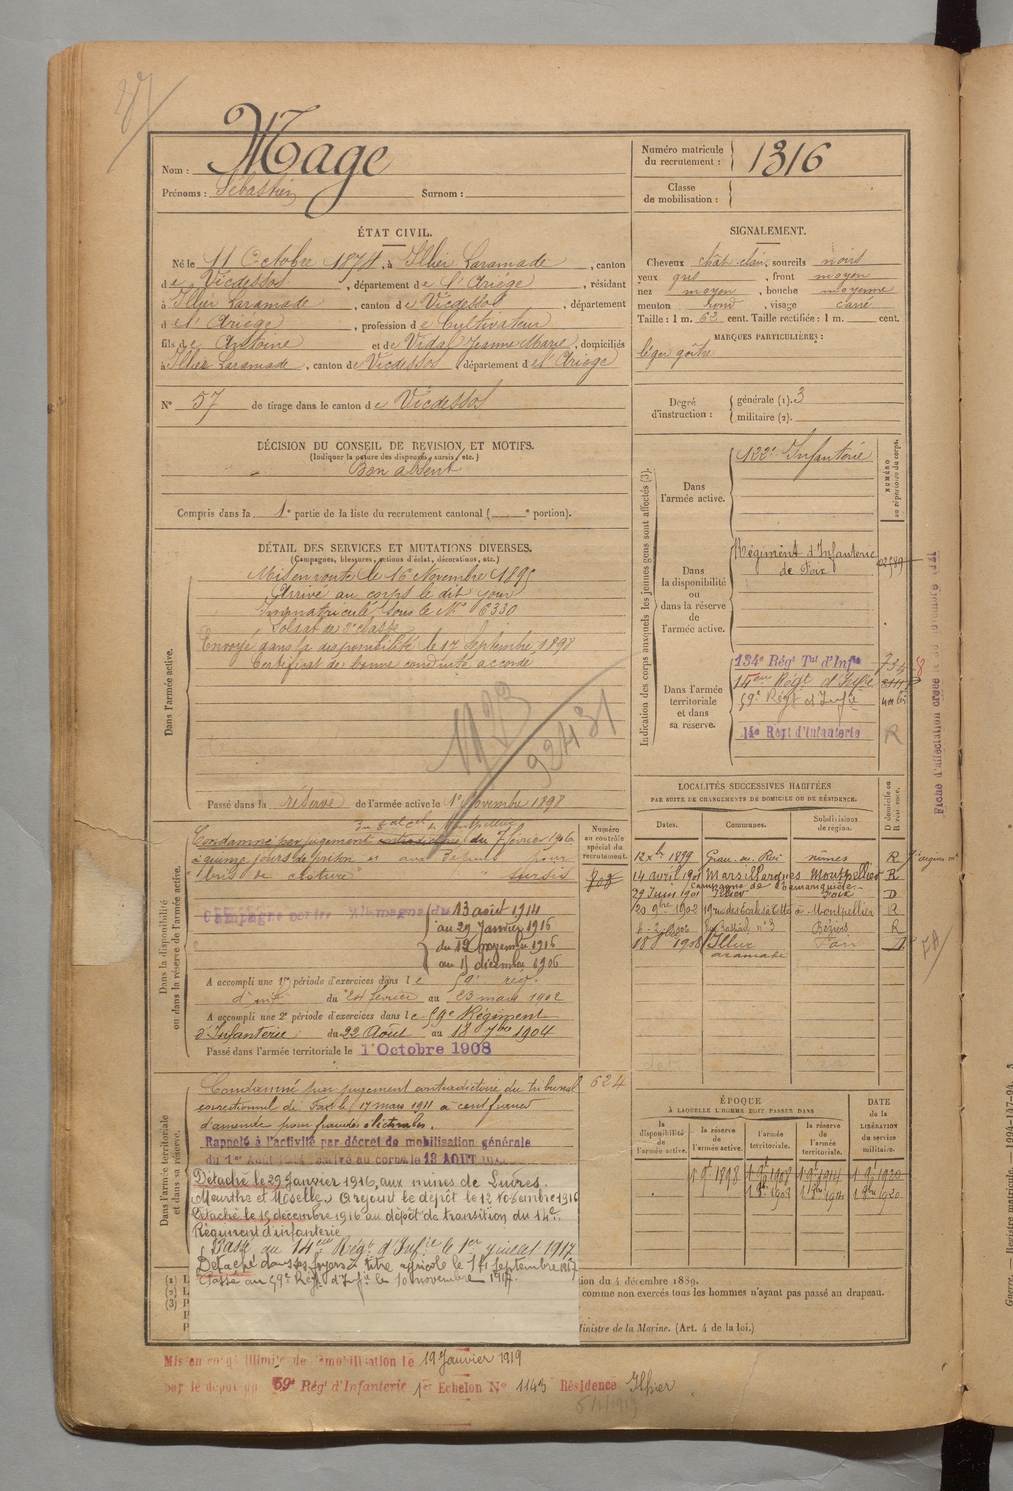 Nom : Mage
Prénoms : Sébastien Surnom :
Numéro matricule du recrutement : 1316
Classe de mobilisation :
ÉTAT CIVIL.
Né le 11 Octobre 1874, à Illier Laramade, canton
de Vicdessos, département de l'Ariége, résidant
à Illier Laramade, canton de Vicdessos, département
de l'Ariége, profession de Cultivateur
fils de Antoine et de Vidal Jeanne Marie, domiciliés
à Illier Laramade, canton de Vicdessos, département de l'Ariege
N° 57 de tirage dans le canton de Vicdessos
SIGNALEMENT.
Cheveux chât clair, sourcils noirs
yeux gris, front moyen
nez moyen, bouche moyenne
menton rond, visage carré
Taille : 1 m. 62 cent. Taille rectifiée : 1 m. cent.
MARQUES PARTICULIÈRES :
léger goître
Degré d'instruction : générale (1). 3
militaire (2).
DÉCISION DU CONSEIL DE REVISION ET MOTIFS.
(Indiquer la nature des dispenses, sursis, etc.)
Bon absent
Compris dans la 1e partie de la liste du recrutement cantonal ( e portion).
DÉTAIL DES SERVICES ET MUTATIONS DIVERSES.
(Campagnes, blessures, actions d'éclat, décorations, etc.)
Dans l'armée active.
Mis en route le 16 Novembre 1895
Arrivé au corps le dit jour
Immatriculé sous le N° 6330
Soldat de 2e classe
Envoyé dans la disponibilité le 17 Septembre 1898
Certificat de bonne conduite accordé
1123
92431
Passé dans la réserve de l'armée active le 1er Novembre 1898
Indication des corps auxquels les jeunes gens sont affectés (3).
NUMÉRO au répertoire du corps.
Dans l'armée active.
122e Infanterie
Dans la disponibilité ou dans la réserve de l'armée active.
Régiment d'Infanterie
de Foix
Dans l'armée territoriale et dans sa réserve.
134e Régt Tal d'Infie
14eme Régt d'Infie
59e Régt d'Infie
14e Regt d'Infanterie
R
LOCALITÉS SUCCESSIVES HABITÉES
PAR SUITE DE CHANGEMENTS DE DOMICILE OU DE RÉSIDENCE.
Dates. Communes. Subdivisions de région. D domicile ou R résidence.
12 Xbre 1899 Grau du Roi nimes R
14 avril 1901 Marsillargues Montpellier R
Campagne de
29 Juin 1901 Illier Foix D
20 9bre 1902 Montpellier R
n° 3 Béziers R
1908 Illier Foix D
aramade
Dans la disponibilité ou dans la réserve de l'armée active.
Numéro au contrôle spécial du recrutement.
Condamné par jugement contradictoire du 7 février 1906
à quinze jours de prison et aux dépens pour
bris de cloture sursis
Campagne contre Allemagne du 13 août 1914
au 29 Janvier 1916
du 12 novembre 1916
au 15 décembre 1916
A accompli une 1re période d'exercices dans le 59e reg.
d'inf. du 24 février au 23 mars 1902
A accompli une 2e période d'exercices dans le 59e Régiment
d'Infanterie du 22 Août au 18 7bre 1904
Passé dans l'armée territoriale le 1er Octobre 1908
Dans l'armée territoriale et dans sa réserve.
Condamné par jugement contradictoire du tribunal
correctionnel de Foix le 17 mars 1911 à cent francs
d'amende pour fraudes électorales.
624
Rappelé à l'activité par décret de mobilisation générale
du 1er Août 1914. Arrivé au corps le 13 AOUT 1914
Détaché le 29 Janvier 1916, aux mines de Luires.
Meurthe et Moselle. Rejoint le dépôt le 12 novembre 1916
Détaché le 15 décembre 1916 au dépôt de transition du 14e
Régiment d'infanterie
Passé au 14eme Régt d'Infie le 1er Juillet 1917
Détaché dans ses foyers à titre agricole le Septembre 1917
Passé au 59e Régt d'Infie le 10 novembre 1917.
ÉPOQUE
À LAQUELLE L'HOMME DOIT PASSER DANS
la disponibilité de l'armée active. la réserve de l'armée active. l'armée territoriale. la réserve de l'armée territoriale.
DATE de la LIBÉRATION du service militaire.
1898 1908 1914 1920
1908 1914 1920
(1) L
(2) L
(3) P
ion du 4 décembre 1889.
comme non exercés tous les hommes n'ayant pas passé au drapeau.
Ministre de la Marine. (Art. 4 de la loi.)
Mis en congé illimité de démobilisation le 19 Janvier 1919
par le dépôt du 59e Régt d'Infanterie 1er Echelon N° 1143 Résidence Illier